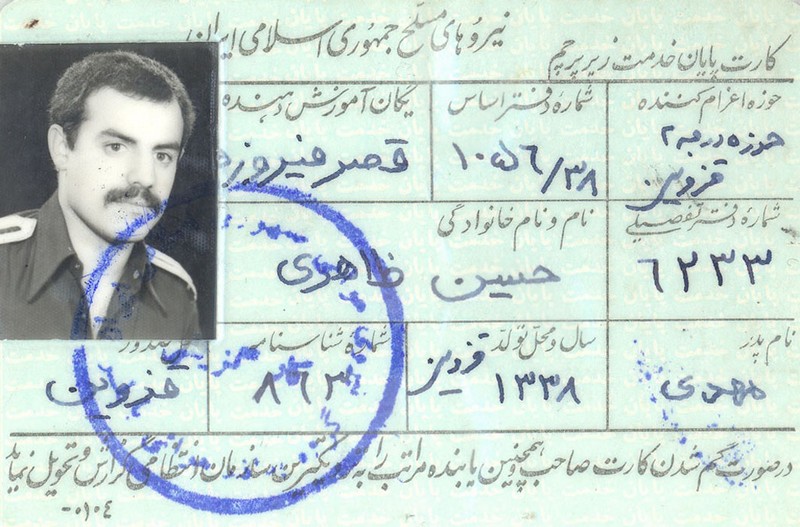 نیروهای مسلح جمهوری اسلامی ایران
کارت پایان خدمت زیر پرچم
حوزه اعزام کننده
حوزه درجه ۲
قزوین
شماره دفتر اساس
۱۰۵۶/۳۸
یگان آموزش دهنده
قصر فیروزه
شماره دفتر تفصیلی
۶۲۳۳
نام و نام خانوادگی
حسین طاهری
نام پدر
مهدی
سال و محل تولد
۱۳۳۸ قزوین
شماره شناسنامه
۸۶۳
محل صدور
قزوین
در صورت گم شدن کارت صاحب و همچنین یابنده مراتب را به نزدیکترین سازمان انتظامی گزارش و تحویل نماید
۰۱۰۴-